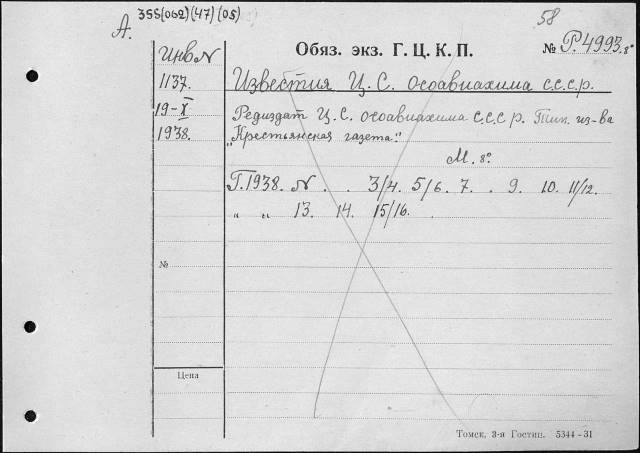 355(062)(47)(05)
А.
58
Обяз. экз. Г. Ц. К. П.
№ Р.4993. 8°
Инв N
1137.
19-X
1938.
Известия Ц. С. Осоавиахима С.С.С.Р.
Редиздат Ц. С. Осоавиахима С.С.С Р. Тип. из-ва
„Крестьянская газета."
М. 8°.
Г. 1938. N . . 3/4. 5/6. 7. . 9. 10. 11/12.
„ „ 13. 14. 15/16. .
№
Цена
Томск, 3-я Гостип. 5344-31